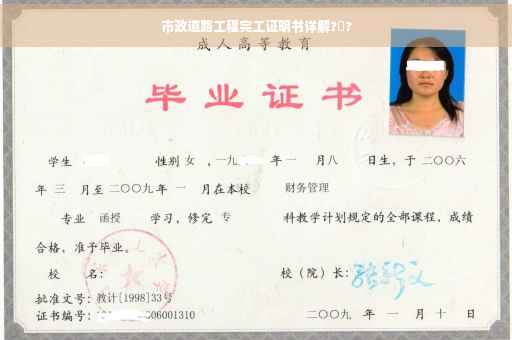 市政道路工程完工证明书详解?�?
成人高等教育
毕业证书
学生 性别 女 ，一九 年 一 月八 日生，于 二〇〇六
年 三 月至 二〇〇九年 一 月在本校 财务管理
专业 函授 学习，修完 专 科教学计划规定的全部课程，成绩
合格，准予毕业。
校 名： 校（院）长：
批准文号：教计[1998]33号
证书编号： 06001310 二〇〇九 年 一 月 十 日